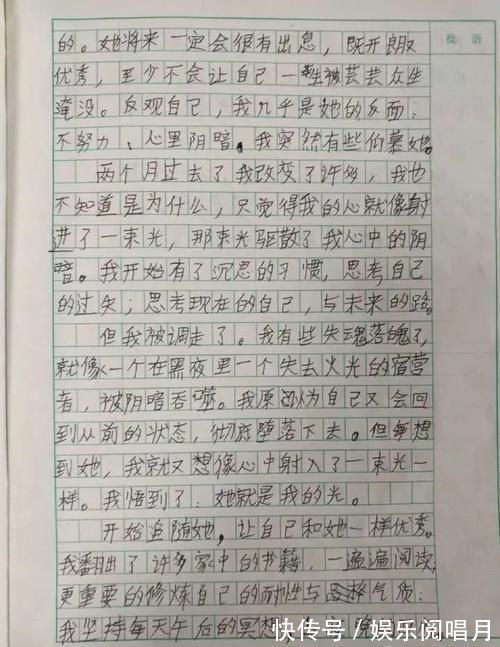 批语
的。她将来一定会很有出息，既开朗又
优秀，至少不会让自己一生被芸芸众生
淹没。反观自己，我几乎是她的反面：
不努力、心里阴暗。我突然有些伯慕她。
两个月过去了我改变了许多，我也
不知道是为什么，只觉得我的心就像射
进了一束光，那束光驱散了我心中的阴
暗。我开始有了沉思的习惯，思考自己
的过失；思考现在的自己，与未来的路。
但我被调走了。我有些失魂落魄了，
就像一个在黑夜里一个失去火光的宿营
者，被阴暗吞噬。我原以为自己又会回
到从前的状态，彻底堕落下去。但每想
到她，我就又想像心中射入了一束光一
样。我悟到了：她就是我的光。
开始追随她，让自己和她一样优秀。
我翻出了许多家中的书籍，一遍遍阅读，
更重要的修炼自己的耐性与气质：
我坚持每天午后的冥想，
快传号／娱乐阅唱月